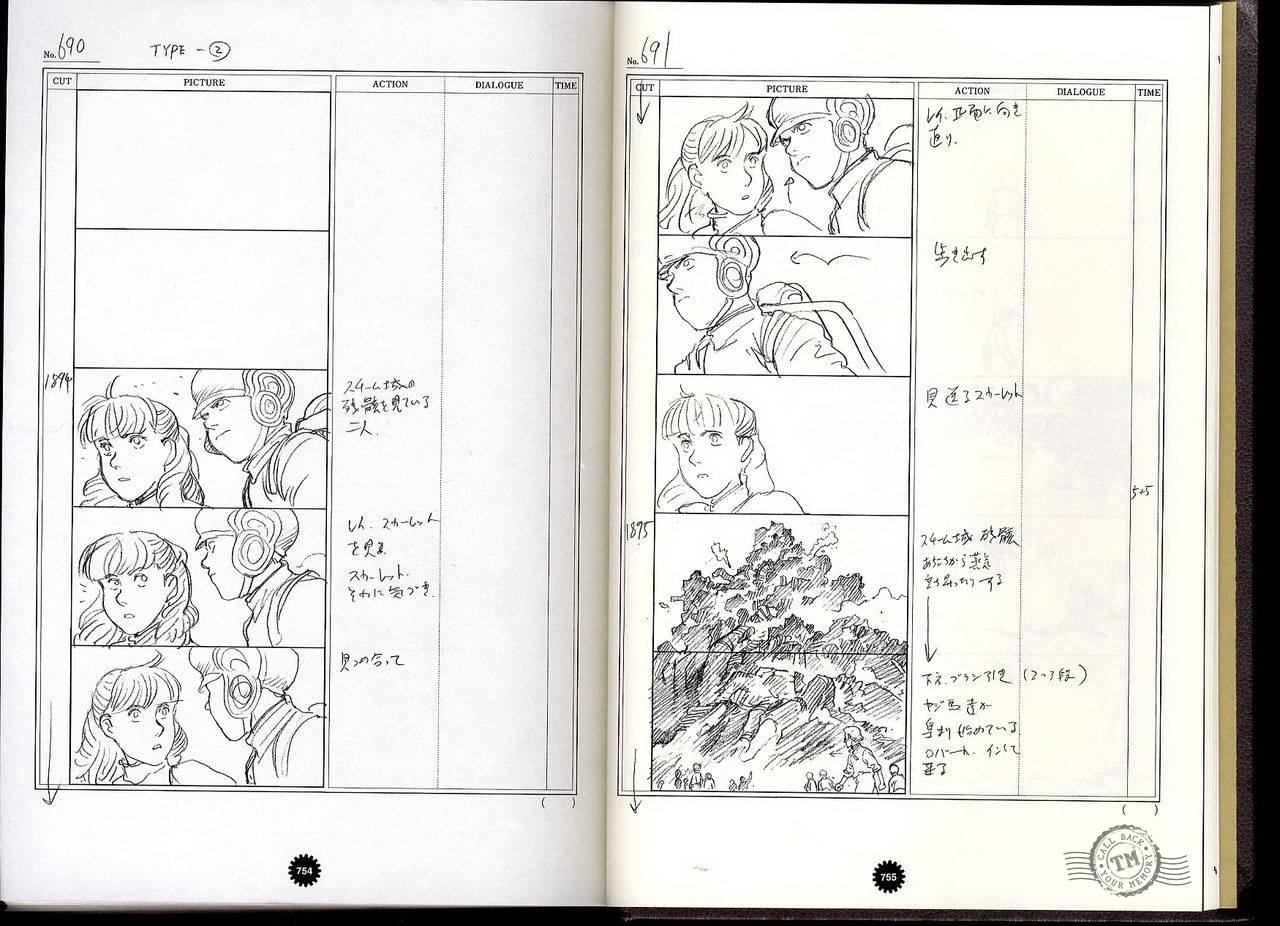 No. 690
TYPE - ②
CUT
PICTURE
ACTION
DIALOGUE
TIME
1894
スチーム城の
残骸を見ている
二人.
レイ. スカーレット
を見る
スカーレット.
それに気づき.
見つめ合って
( )
754
No. 691
CUT
PICTURE
ACTION
DIALOGUE
TIME
レイ. 正面に向き
直り.
歩き出す
見送るスカーレット
5+5
1895
スチーム城 残骸
あちこちから蒸気
立ち昇ったりーする
(2〜3段)
ヤジ馬達が
集まり始めている
ロバート. インして
来る
( )
755
CALL BACK
TM
YOUR MEMORY